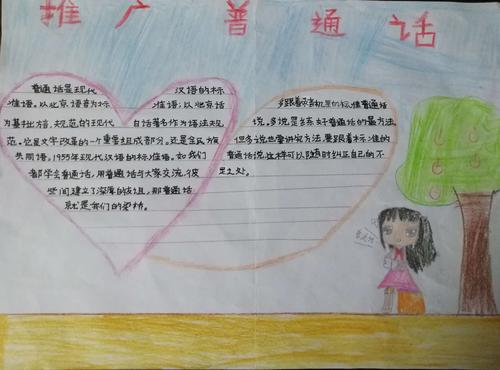 推广普通话
普通话是现代 汉语的标
准语。以北京语音为标 准语,以北京话
为基础方 规范的现代 白话著名作为语法规
范。它是文字改革的一个重要组成部分。还是全民族
共同语。1955年现代汉语的标准语。如我们
都学会普通话,用普通话与大家交流,彼
此间建立了深厚的友谊,那普通话
就是我们的桥。
多跟着 机里的标准普通话
说。多说是练好普通话的最好方法。
但多说也要讲究方法,要跟着标准的
普通话说,这样可以随时纠正自己的不
足之处。